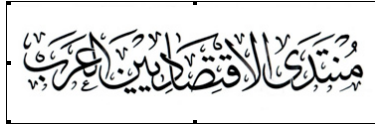 مُنتَدَى الاقتِصَادِيين العَرَب